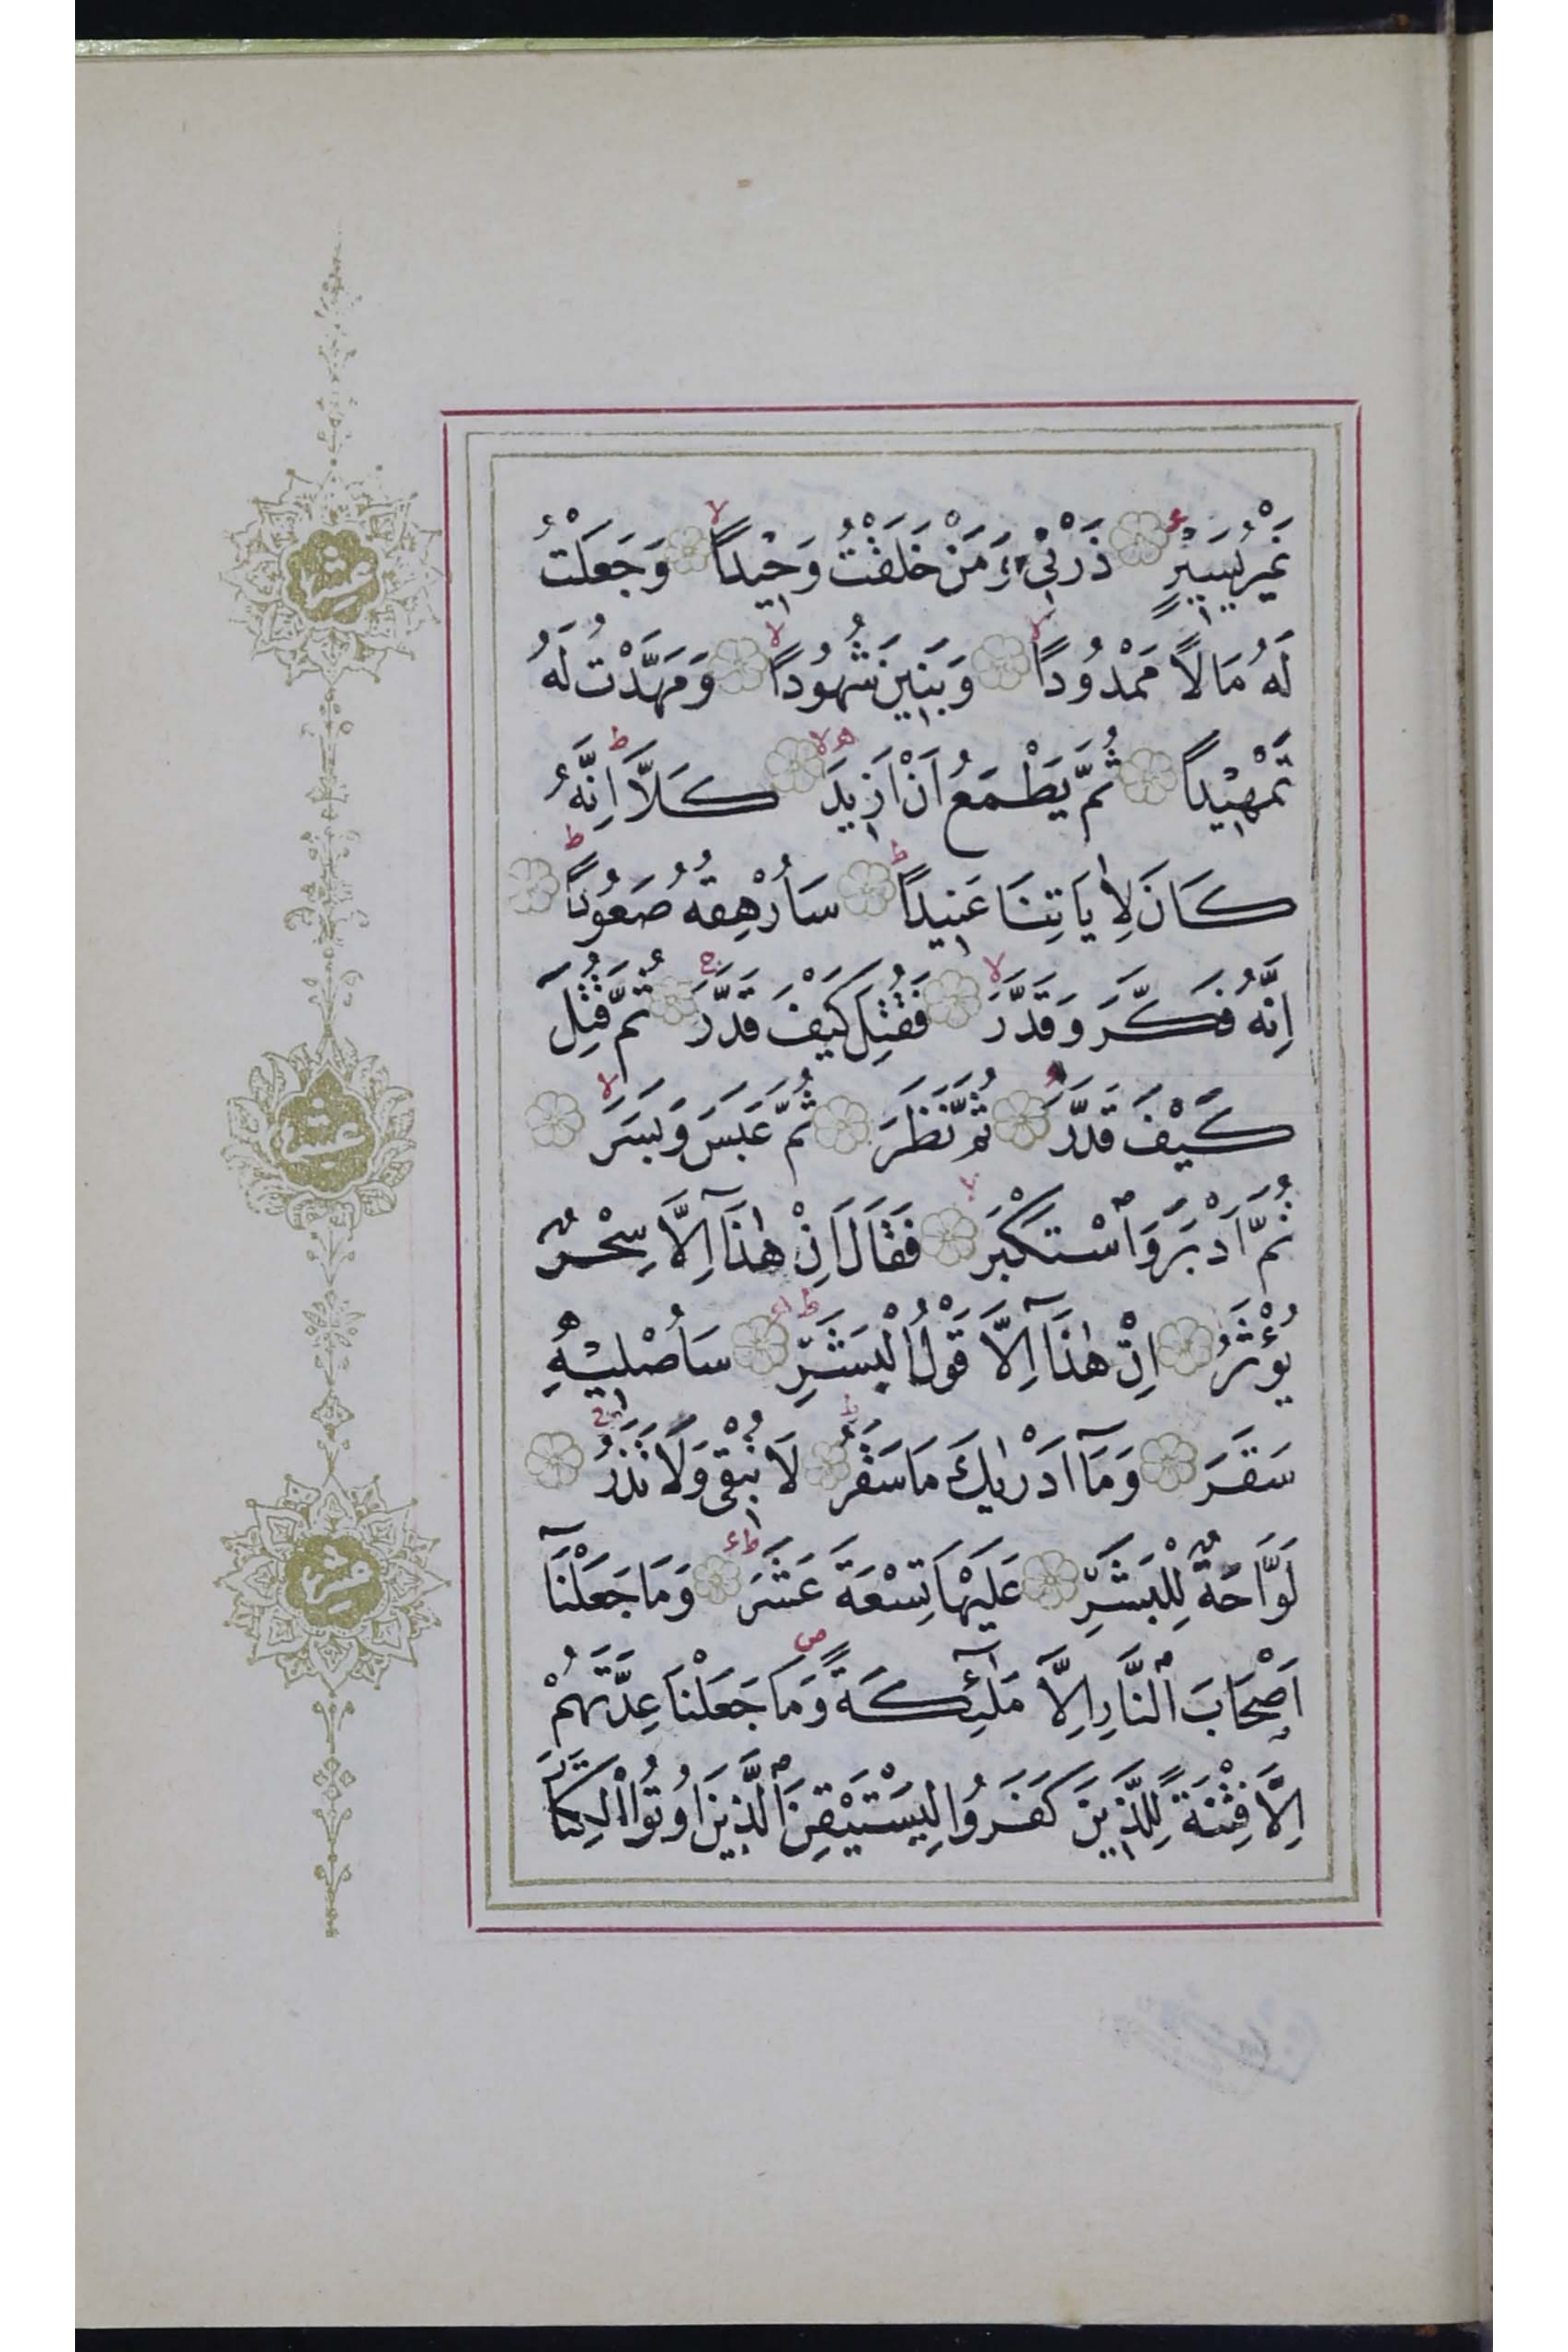 غَيْرُ يَسِيرٍ ذَرْنِي وَمَنْ خَلَقْتُ وَحِيدًا وَجَعَلْتُ
لَهُ مَالًا مَمْدُودًا وَبَنِينَ شُهُودًا وَمَهَّدْتُ لَهُ
تَمْهِيدًا ثُمَّ يَطْمَعُ اَنْ اَزِيدَ كَلَّا اِنَّهُ
كَانَ لِاٰيَاتِنَا عَنِيدًا سَاُرْهِقُهُ صَعُودًا
اِنَّهُ فَكَّرَ وَقَدَّرَ فَقُتِلَ كَيْفَ قَدَّرَ ثُمَّ قُتِلَ
كَيْفَ قَدَّرَ ثُمَّ نَظَرَ ثُمَّ عَبَسَ وَبَسَرَ
ثُمَّ اَدْبَرَ وَاسْتَكْبَرَ فَقَالَ اِنْ هٰذَٓا اِلَّا سِحْرٌ
يُؤْثَرُ اِنْ هٰذَٓا اِلَّا قَوْلُ الْبَشَرِ سَاُصْلِيهِ
سَقَرَ وَمَٓا اَدْرٰيكَ مَا سَقَرُ لَا تُبْقِي وَلَا تَذَرُ
لَوَّاحَةٌ لِلْبَشَرِ عَلَيْهَا تِسْعَةَ عَشَرَ وَمَا جَعَلْنَٓا
اَصْحَابَ النَّارِ اِلَّا مَلٰٓئِكَةً وَمَا جَعَلْنَا عِدَّتَهُمْ
اِلَّا فِتْنَةً لِلَّذِينَ كَفَرُوا لِيَسْتَيْقِنَ الَّذِينَ اُوتُوا الْكِتَابَ
عشر
عشر
عشر